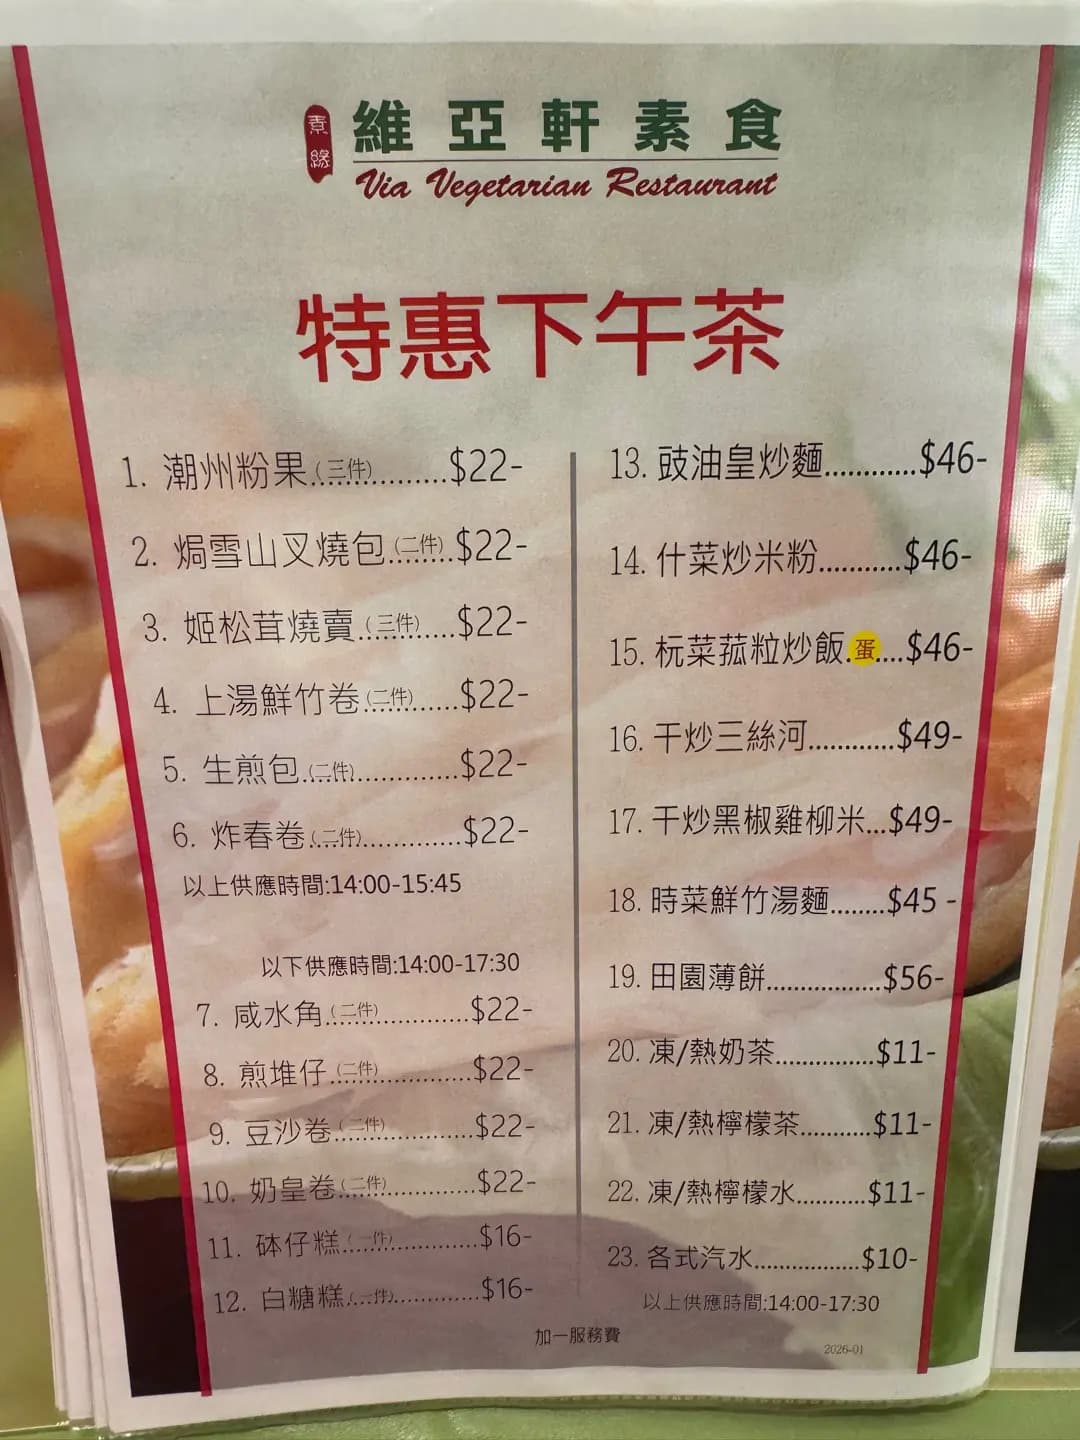 素緣
維亞軒素食
Via Vegetarian Restaurant
特惠下午茶
1. 潮州粉果(三件)..............$22-
2. 焗雪山叉燒包(二件)........$22-
3. 姬松茸燒賣(三件)...........$22-
4. 上湯鮮竹卷(二件)...........$22-
5. 生煎包(二件)..................$22-
6. 炸春卷(二件)..................$22-
以上供應時間:14:00-15:45
以下供應時間:14:00-17:30
7. 咸水角(二件)..................$22-
8. 煎堆仔(二件)..................$22-
9. 豆沙卷(二件)..................$22-
10. 奶皇卷(二件)................$22-
11. 砵仔糕(一件)................$16-
12. 白糖糕(一件)................$16-
13. 豉油皇炒麵............$46-
14. 什菜炒米粉...........$46-
15. 杬菜菰粒炒飯.蛋....$46-
16. 干炒三絲河...........$49-
17. 干炒黑椒雞柳米...$49-
18. 時菜鮮竹湯麵........$45 -
19. 田園薄餅................$56-
20. 凍/熱奶茶..............$11-
21. 凍/熱檸檬茶..........$11-
22. 凍/熱檸檬水..........$11-
23. 各式汽水................$10-
以上供應時間:14:00-17:30
加一服務費
2026-01